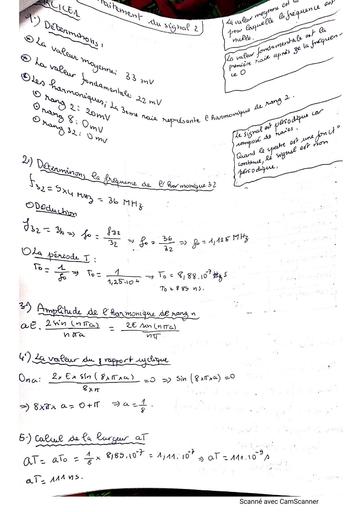 EXERCICE 1
Traitement du signal 2
1) Déterminons :
La valeur moyenne : 33 mV
La valeur fondamentale : 22 mV
Les harmoniques, la 3eme raie représente l'harmonique de rang 2.
rang 2 : 20mV
rang 8 : 0mV
rang 32 : 0mV
La valeur moyenne est la
pour laquelle la fréquence est
nulle.
La valeur fondamentale est la
première raie après la fréquen-
ce 0
Le signal est périodique car
composé de raies.
Quand le spectre est une fonct°
continue, le signal est non
périodique.
2) Déterminons la fréquence de l'harmonique 32
f32 = 9x4 MHz = 36 MHz
Déduction
f32 = 32f0 => f0 = f32/32 => f0 = 36/32 => f0 = 1,125 MHz
La période T :
T0 = 1/f0 => T0 = 1/1,125.10⁶ => T0 = 8,88.10⁻⁷ s
T0 = 889 ns.
3) Amplitude de l'harmonique de rang n
aE. 2 sin(nπa)/nπa = 2E sin(nπa)/nπ
4) La valeur du rapport cyclique
On a : 2xEx sin(8xπxa)/8xπ = 0 => sin(8xπxa) = 0
=> 8xπx a = 0+π => a = 1/8.
5) Calcul de la largeur aT
aT = aT0 = 1/8 x 8,89.10⁻⁷ = 1,11.10⁻⁷ => aT = 111.10⁻⁹ s
aT = 111 ns.
Scanné avec CamScanner